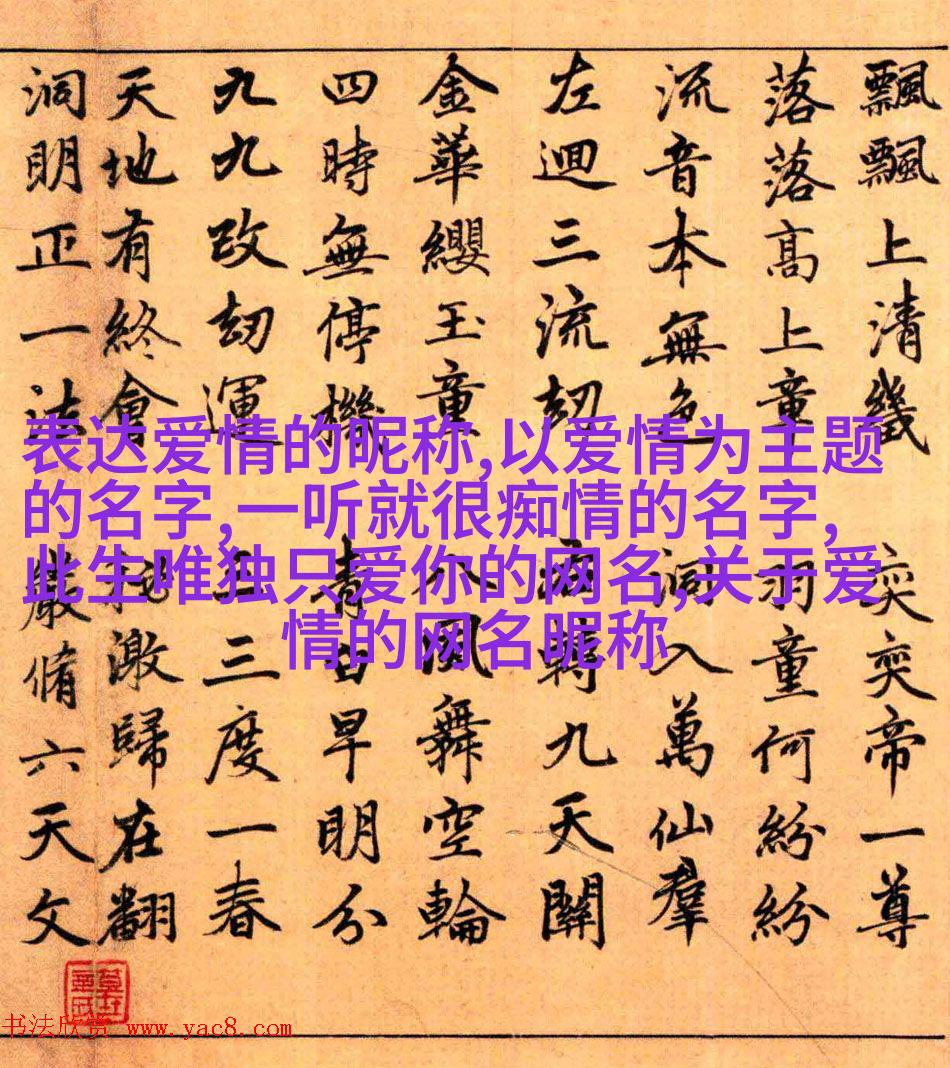 飄飄上清幾奕奕帝一尊
落落高上童羽童何紛紛
流音本無色洞入萬仙羣
左迴三流劫轉九天關
金華纓玉童八風舞空輪
四時無停機青日早明分
九九改劫運三度一春
天地有終會激歸在翻
洞明正一法嚴脩六天文
表达爱情的昵称,以爱情为主题
的名字,一听就很痴情的名字,
此生唯独只爱你的网名,关于爱
情的网名昵称
书法欣赏 www.yac8.com